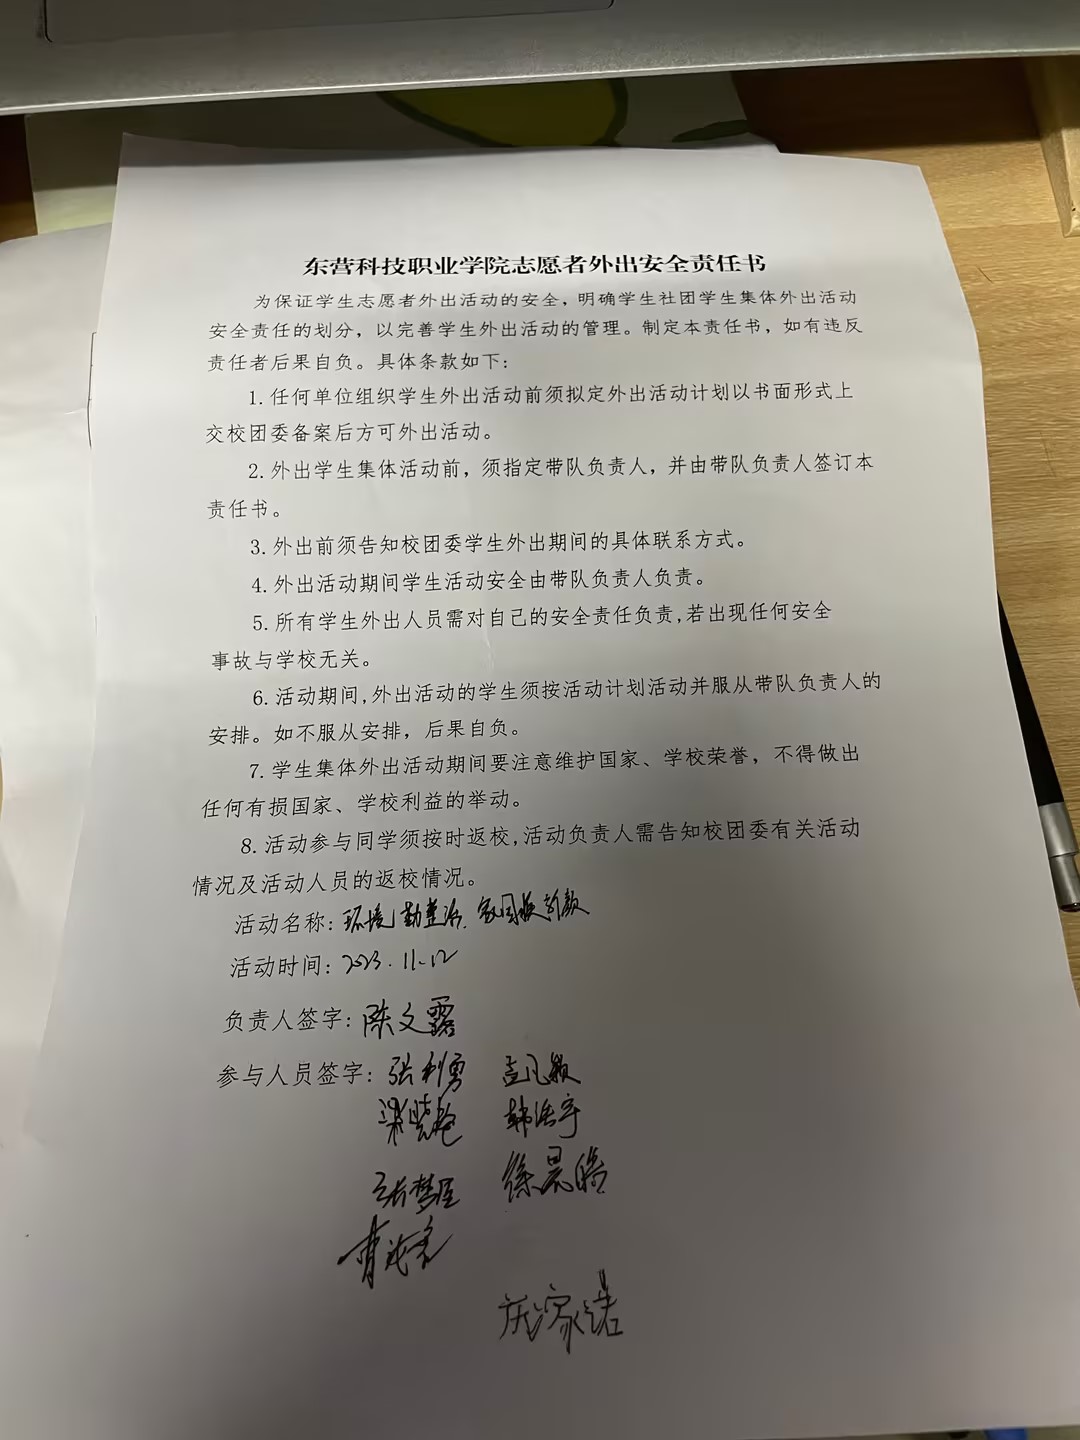 东营科技职业学院志愿者外出安全责任书
为保证学生志愿者外出活动的安全，明确学生社团学生集体外出活动
安全责任的划分，以完善学生外出活动的管理。制定本责任书，如有违反
责任者后果自负。具体条款如下：
1. 任何单位组织学生外出活动前须拟定外出活动计划以书面形式上
交校团委备案后方可外出活动。
2. 外出学生集体活动前，须指定带队负责人，并由带队负责人签订本
责任书。
3. 外出前须告知校团委学生外出期间的具体联系方式。
4. 外出活动期间学生活动安全由带队负责人负责。
5. 所有学生外出人员需对自己的安全责任负责,若出现任何安全
事故与学校无关。
6. 活动期间,外出活动的学生须按活动计划活动并服从带队负责人的
安排。如不服从安排，后果自负。
7. 学生集体外出活动期间要注意维护国家、学校荣誉，不得做出
任何有损国家、学校利益的举动。
8. 活动参与同学须按时返校,活动负责人需告知校团委有关活动
情况及活动人员的返校情况。
活动名称: 环境勤整治. 家园换新颜
活动时间: 2023.11.12
负责人签字: 陈文露
参与人员签字: 张利勇 孟凡颖
梁晓艳 韩浩宇
张梦 徐晨皓
曹
家诺